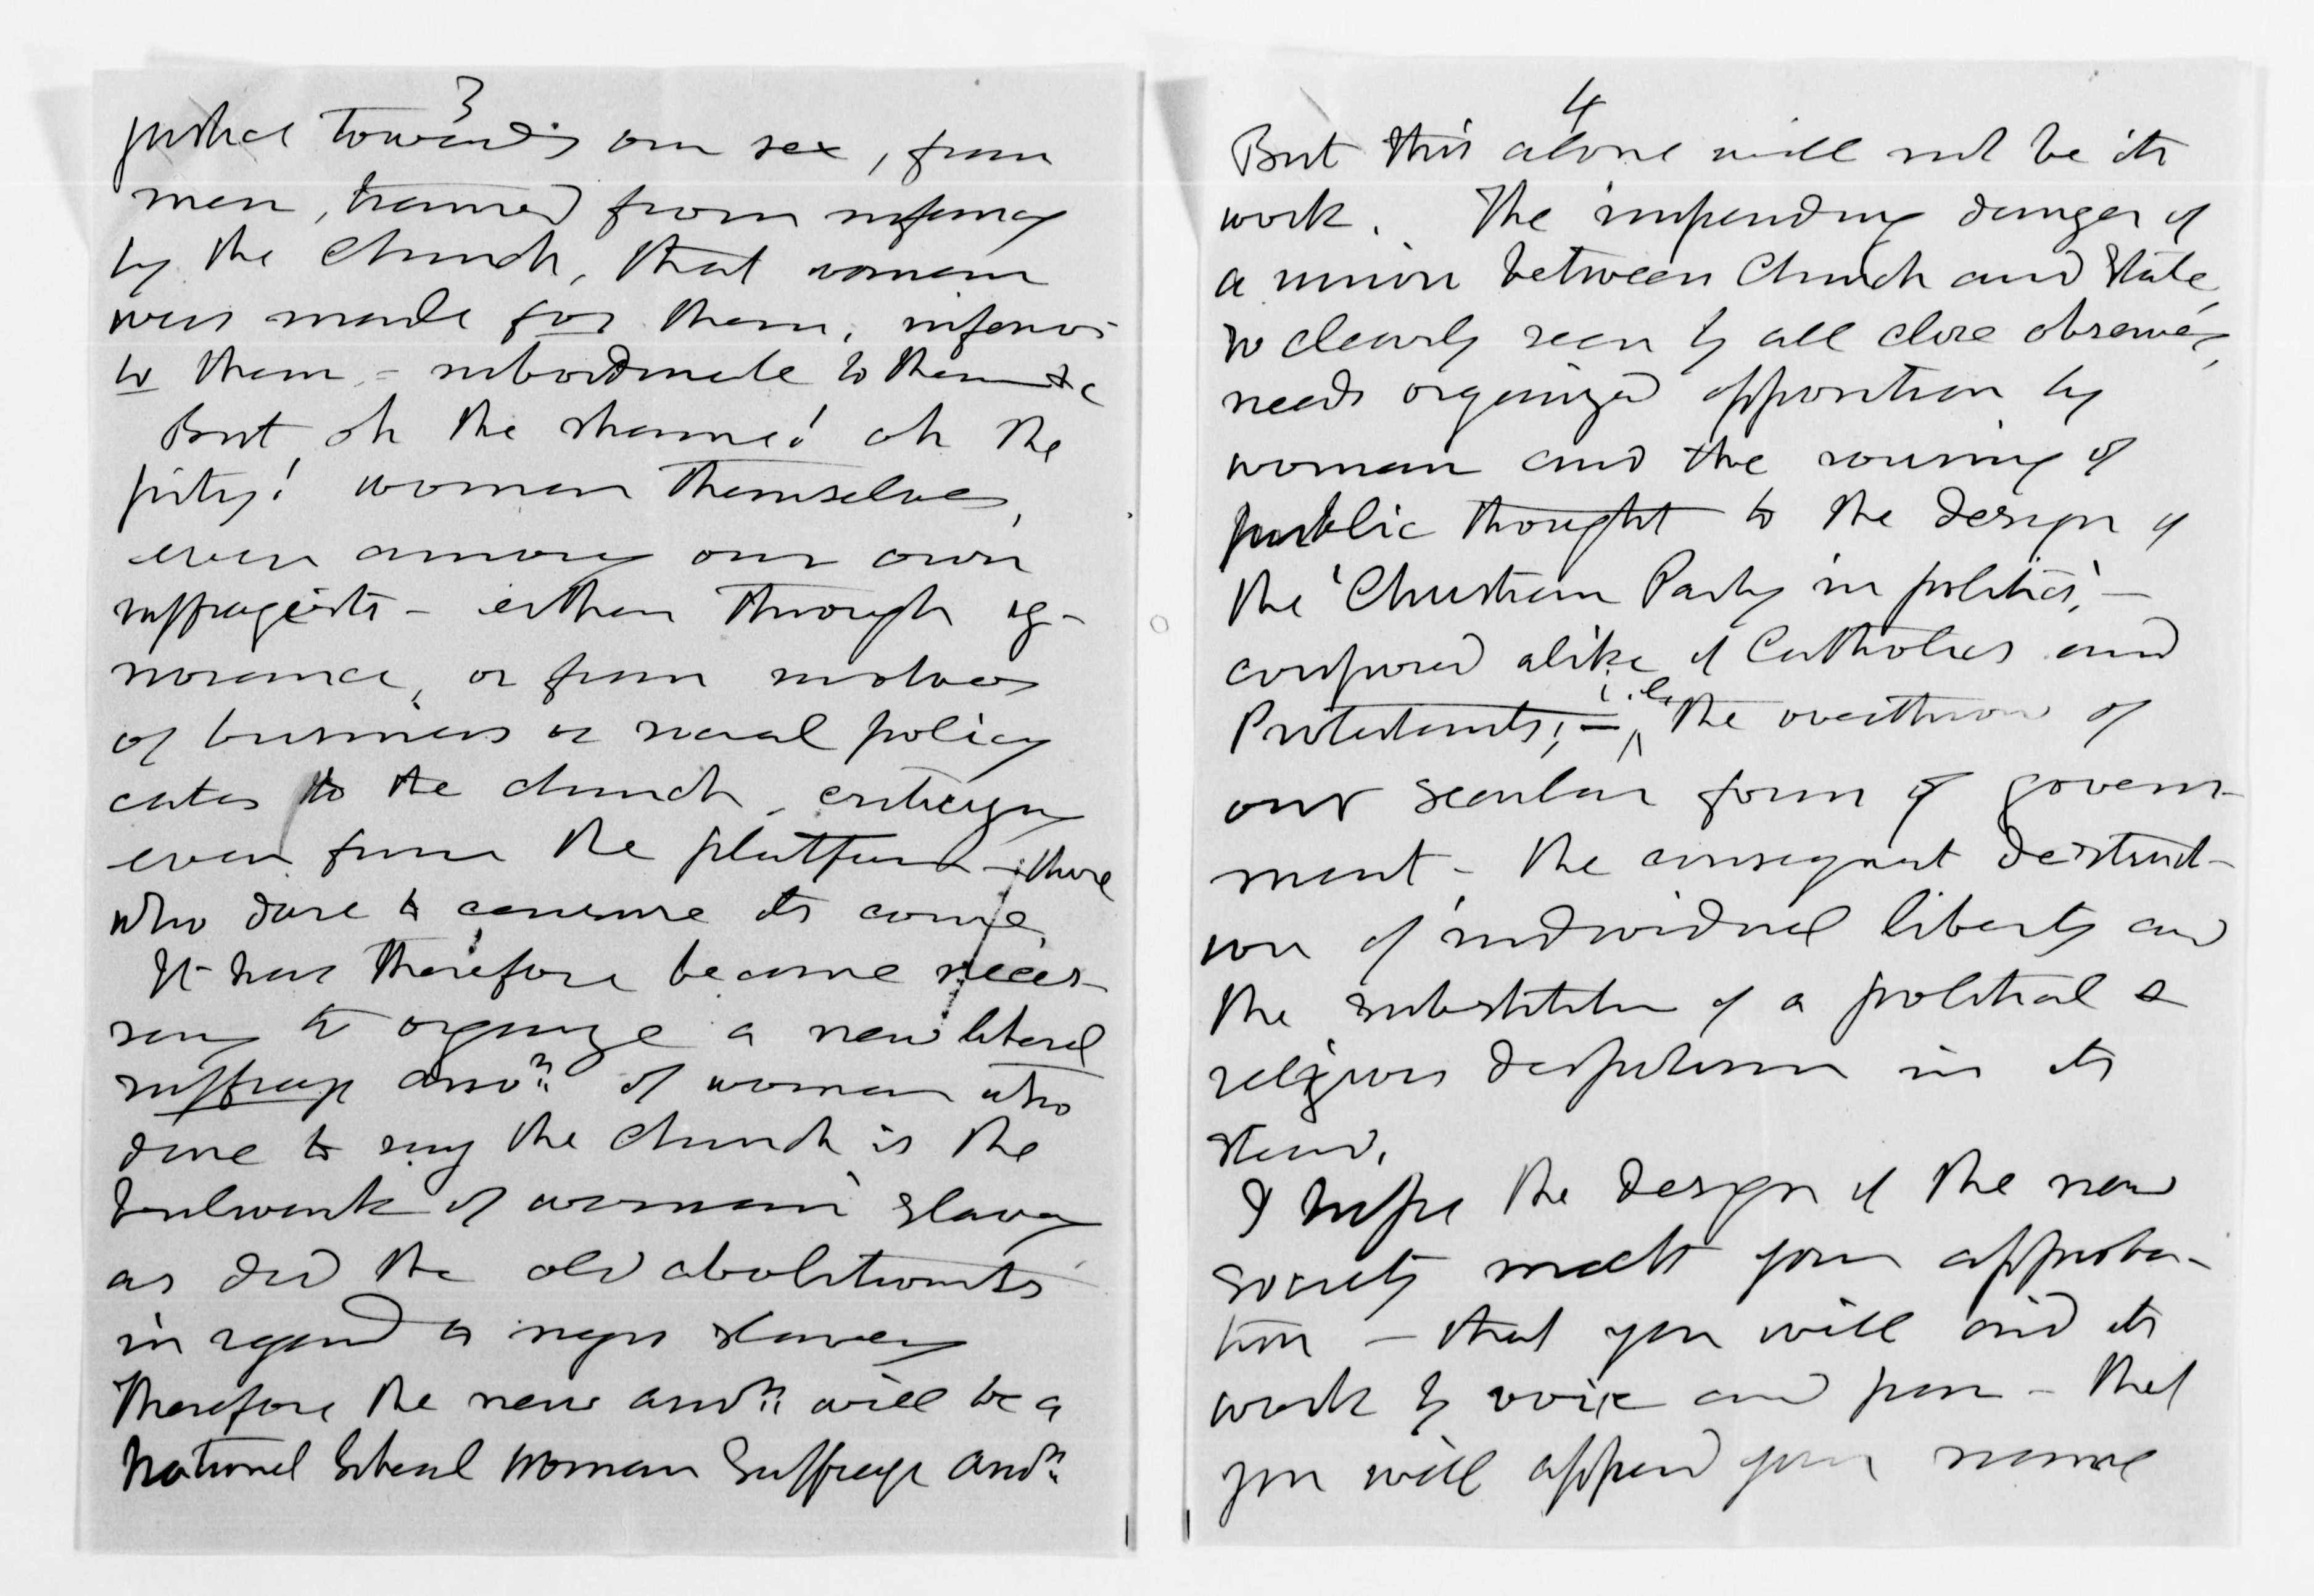 3
justice towards our sex, from
men, trained from infancy
by the Church, that woman
was made for them, inferior
to them, - subordinate to them &c
But oh the shame! oh the
pity! women themselves,
even among our own
suffragists - either through ig-
norance, or from motives
of business or social policy
cater to the church, criticizing
even from the platform - those
who dare to censure its course.
It has therefore become neces-
sary to organize a new liberal
suffrage asson. of women who
dare to say the Church is the
bulwark of woman's slavery
as did the old abolitionists
in regard to negro slavery
Therefore the new asson. will be a
National Liberal Woman Suffrage Asson.
4
But this alone will not be its
work. The impending danger of
a union between Church and State,
so clearly seen by all close observers,
needs organized opposition by
woman and the rousing of
public thought to the design of
the 'Christian Party in politics,' -
composed alike of Catholics and
Protestants; - i.e. the overthrow of
our secular form of govern-
ment - the consequent destruct-
ion of individual liberty and
the substitution of a political &
religious despotism in its
stead.
I hope the design of the new
society meets your approba-
tion - that you will aid its
work by voice and pen - that
you will append your name